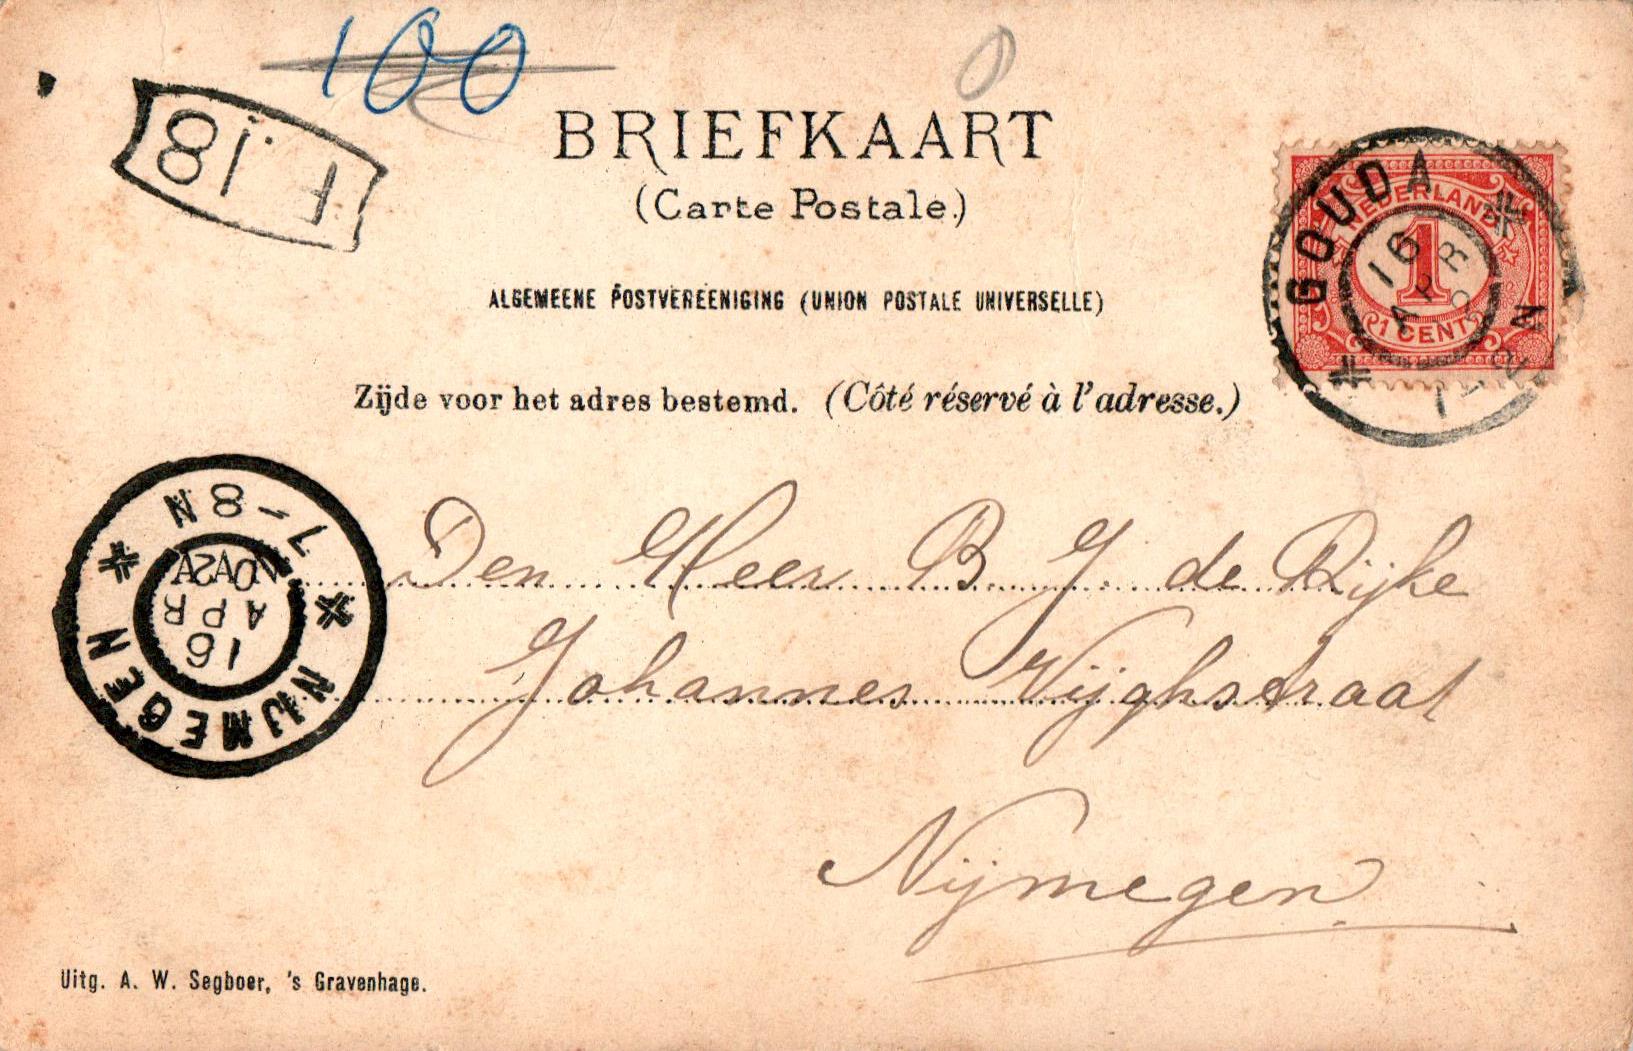 100
0
F.18
BRIEFKAART
(Carte Postale.)
ALGEMEENE POSTVEREENIGING (UNION POSTALE UNIVERSELLE)
Zijde voor het adres bestemd. (Côté réservé à l'adresse.)
GOUDA
16
APR
1-2N
NEDERLAND
1
1 CENT
7-8N
16
APR
NIJMEGEN
Den Heer B J. de Rijke
Johannes Vijghstraat
Nijmegen
Uitg. A. W. Segboer, 's Gravenhage.